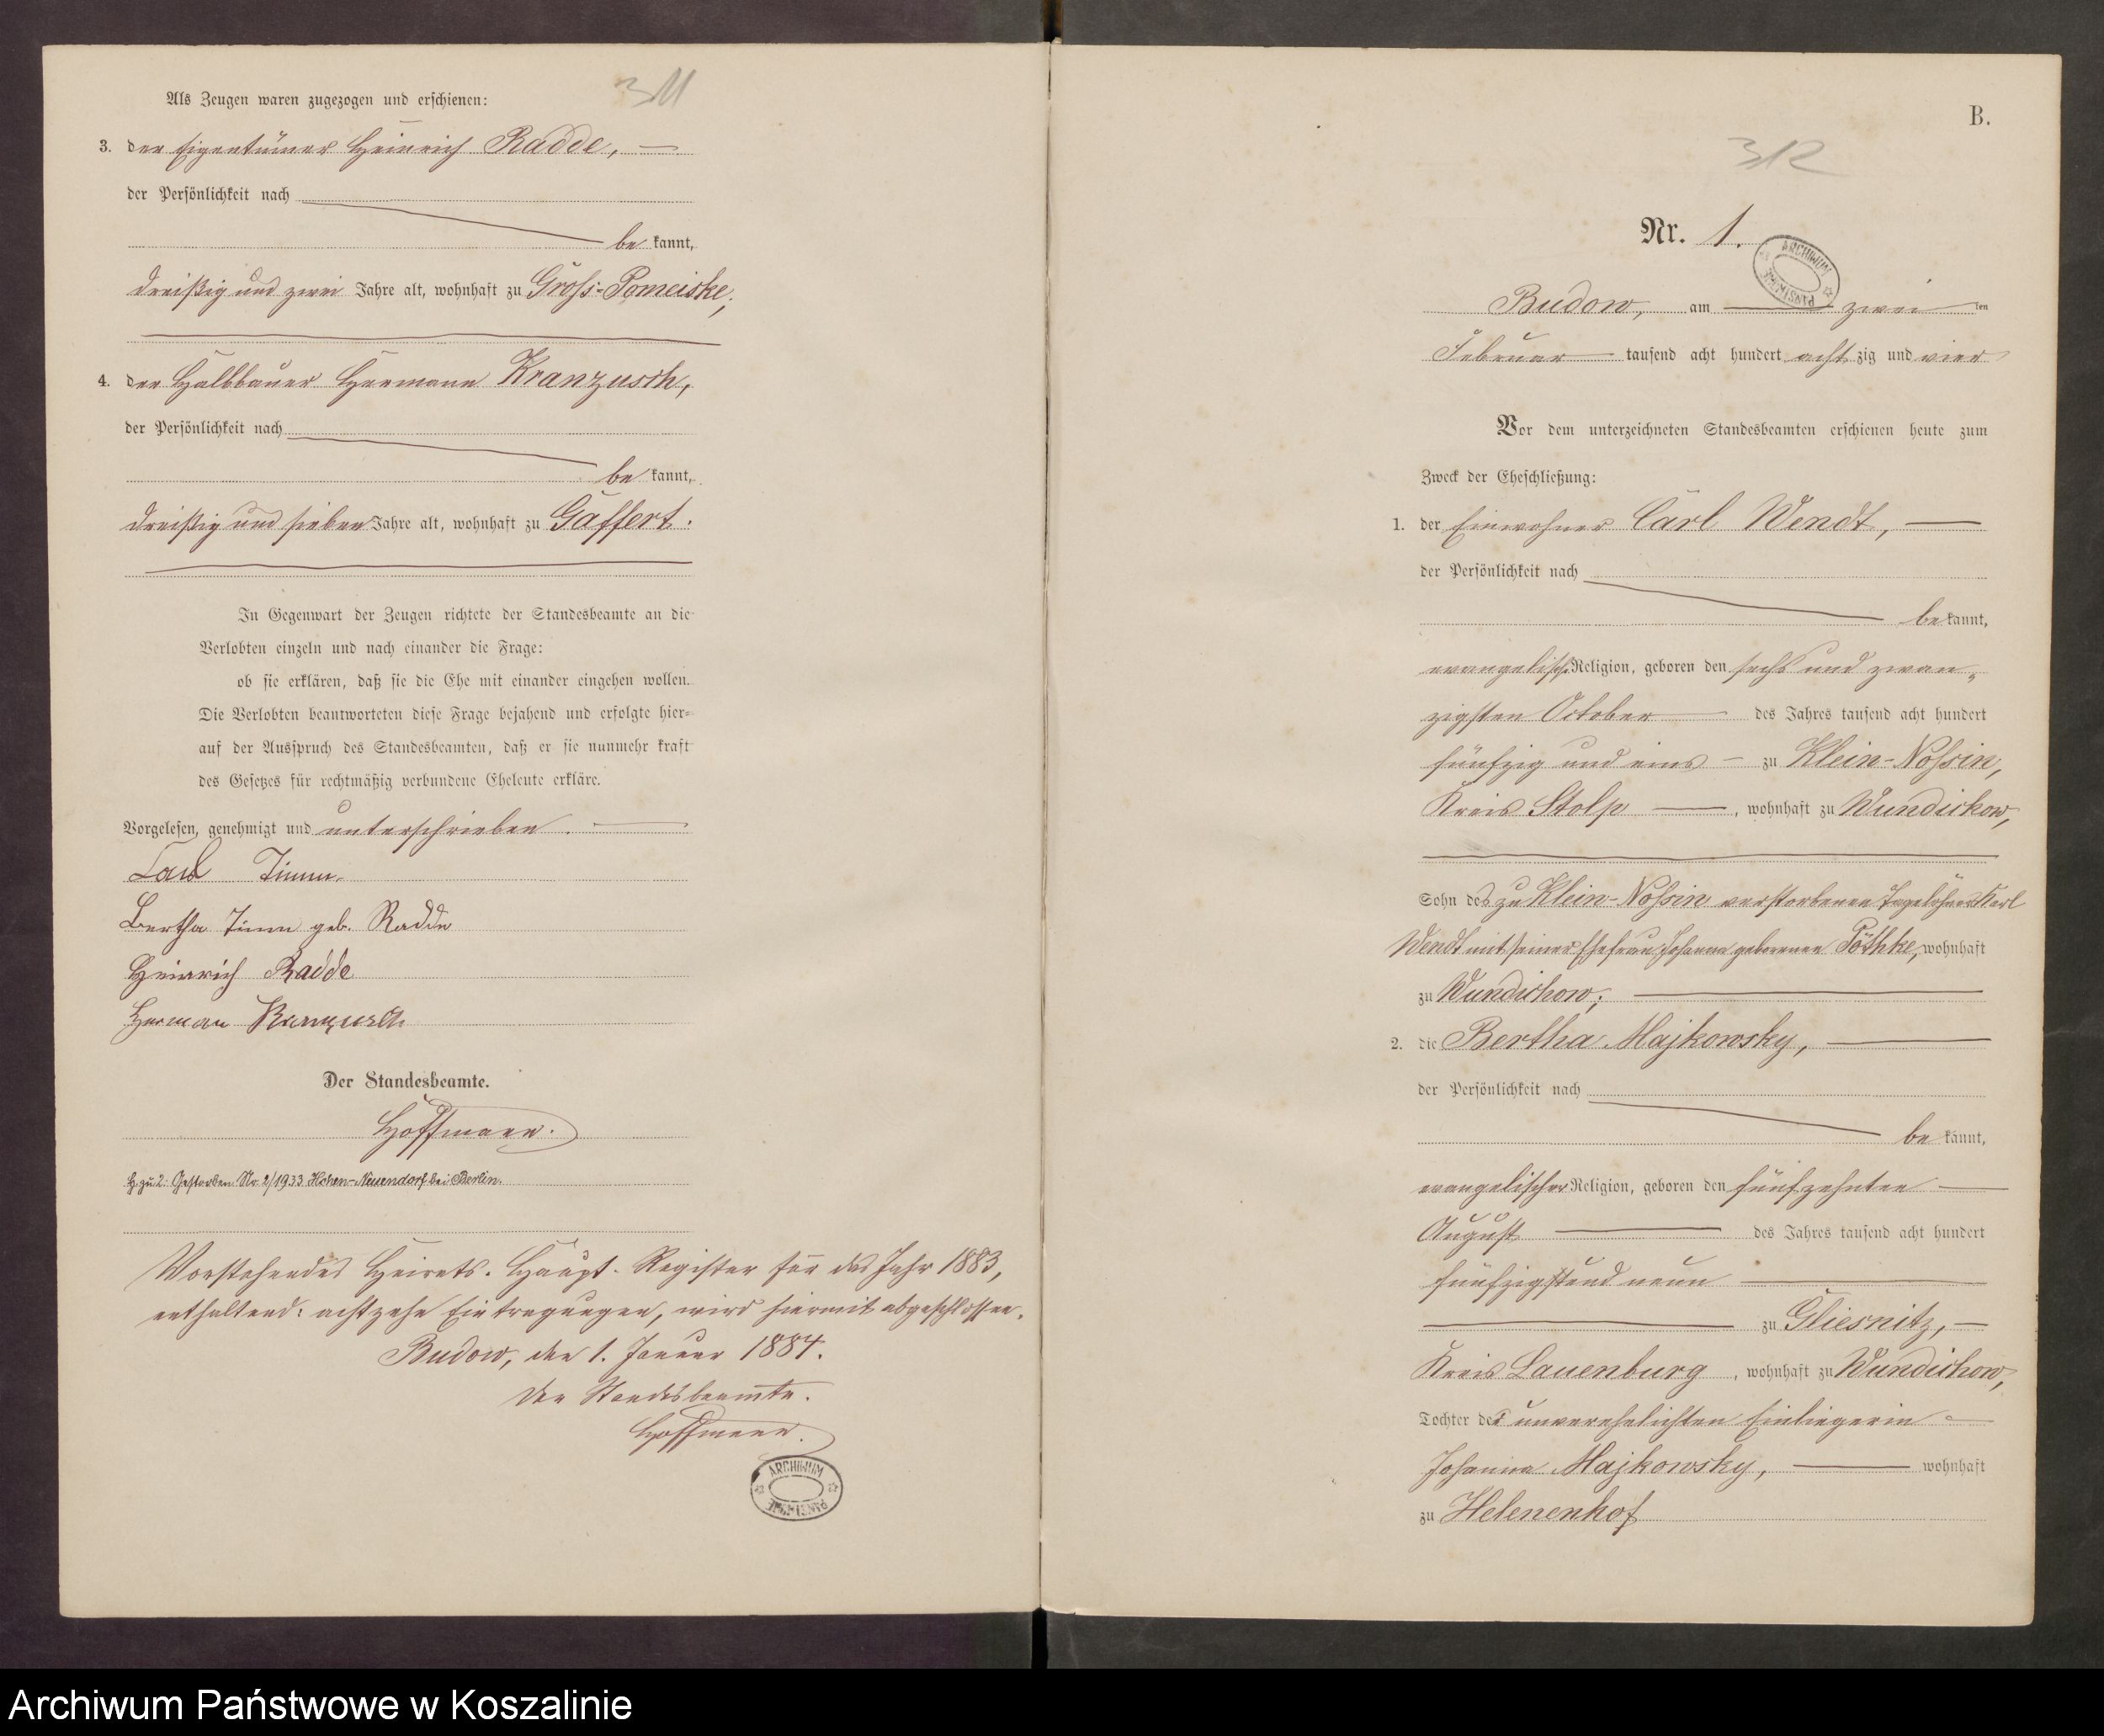 311
Als Zeugen waren zugezogen und erschienen:
3. der Eigentümer Heinrich Radde,
der Persönlichkeit nach
be kannt,
dreißig und zwei Jahre alt, wohnhaft zu Gross-Pomeiske;
4. der Halbbauer Hermann Kranzusch,
der Persönlichkeit nach
be kannt,
dreißig und sieben Jahre alt, wohnhaft zu Gaffert.
In Gegenwart der Zeugen richtete der Standesbeamte an die
Verlobten einzeln und nach einander die Frage:
ob sie erklären, daß sie die Ehe mit einander eingehen wollen.
Die Verlobten beantworteten diese Frage bejahend und erfolgte hier=
auf der Ausspruch des Standesbeamten, daß er sie nunmehr kraft
des Gesetzes für rechtmäßig verbundene Eheleute erkläre.
Vorgelesen, genehmigt und unterschrieben.
Carl Timm
Bertha Timm geb. Radde
Heinrich Radde
Herman Kranzusch
Der Standesbeamte.
Hoffmann.
H. zu 2: Gestorben Nr. 2/1933 Hohen-Neuendorf bei Berlin.
Vorstehendes Heirats-Haupt-Register für das Jahr 1883,
enthaltend: achtzehn Eintragungen, wird hiermit abgeschlossen.
Budow, den 1. Januar 1884.
Der Standesbeamte.
Hoffmann.
ARCHIWUM PAŃSTWOWE
B.
312
Nr. 1.
ARCHIWUM PAŃSTWOWE
Budow, am zwei ten
Februar tausend acht hundert acht zig und vier
Vor dem unterzeichneten Standesbeamten erschienen heute zum
Zweck der Eheschließung:
1. der Einwohner Carl Wendt,
der Persönlichkeit nach
be kannt,
evangelischer Religion, geboren den sechs und zwan-
zigsten October des Jahres tausend acht hundert
fünfzig und eins zu Klein-Nossin,
Kreis Stolp, wohnhaft zu Wundichow,
Sohn des zu Klein-Nossin verstorbenen Tagelöhner Karl
Wendt mit seiner Ehefrau Johanna geborenen Pöthke, wohnhaft
zu Wundichow;
2. die Bertha Majkowsky,
der Persönlichkeit nach
be kannt,
evangelischer Religion, geboren den fünfzehnten
August des Jahres tausend acht hundert
fünfzig und neun
zu Gliesnitz,
Kreis Lauenburg, wohnhaft zu Wundichow,
Tochter der unverehelichten Einliegerin
Johanna Majkowsky, wohnhaft
zu Helenenhof
Archiwum Państwowe w Koszalinie